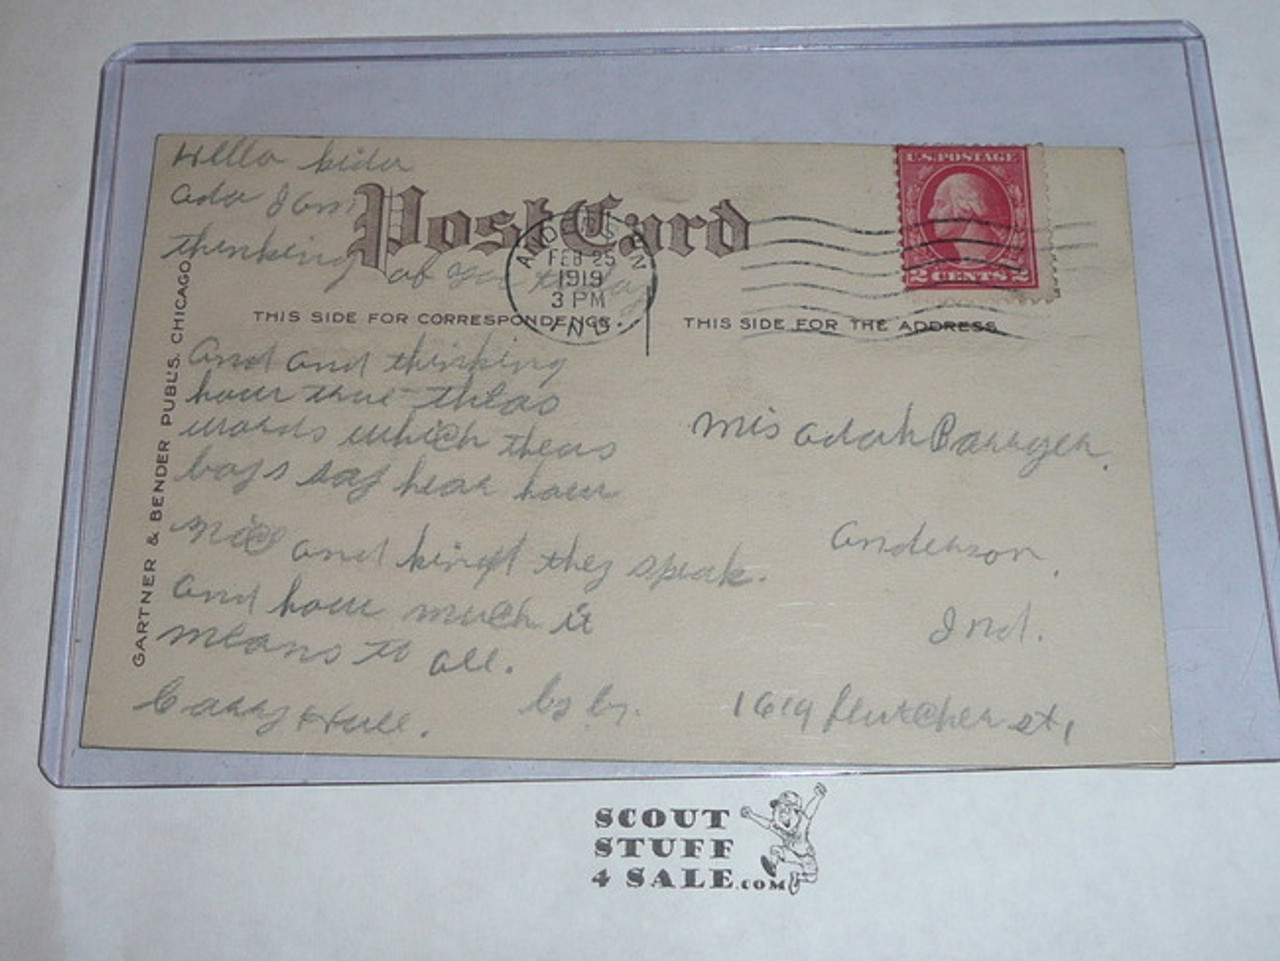 Hello kidu
Ada I am
thinking of you today
Post Card
ANDERSON
FEB 25
1919
3 PM
IND.
U.S. POSTAGE
2 CENTS 2
THIS SIDE FOR CORRESPONDENCE.
THIS SIDE FOR THE ADDRESS
GARTNER & BENDER PUBL'S. CHICAGO
And and thinking
how true theas
words which theas
boys say hear how
nice and kind they speak.
and how much it
means to all.
Carry Hull. by by.
Mis adah Barrger.
Anderson,
Ind.
1619 flutcher st,
SCOUT
STUFF
4 SALE.COM